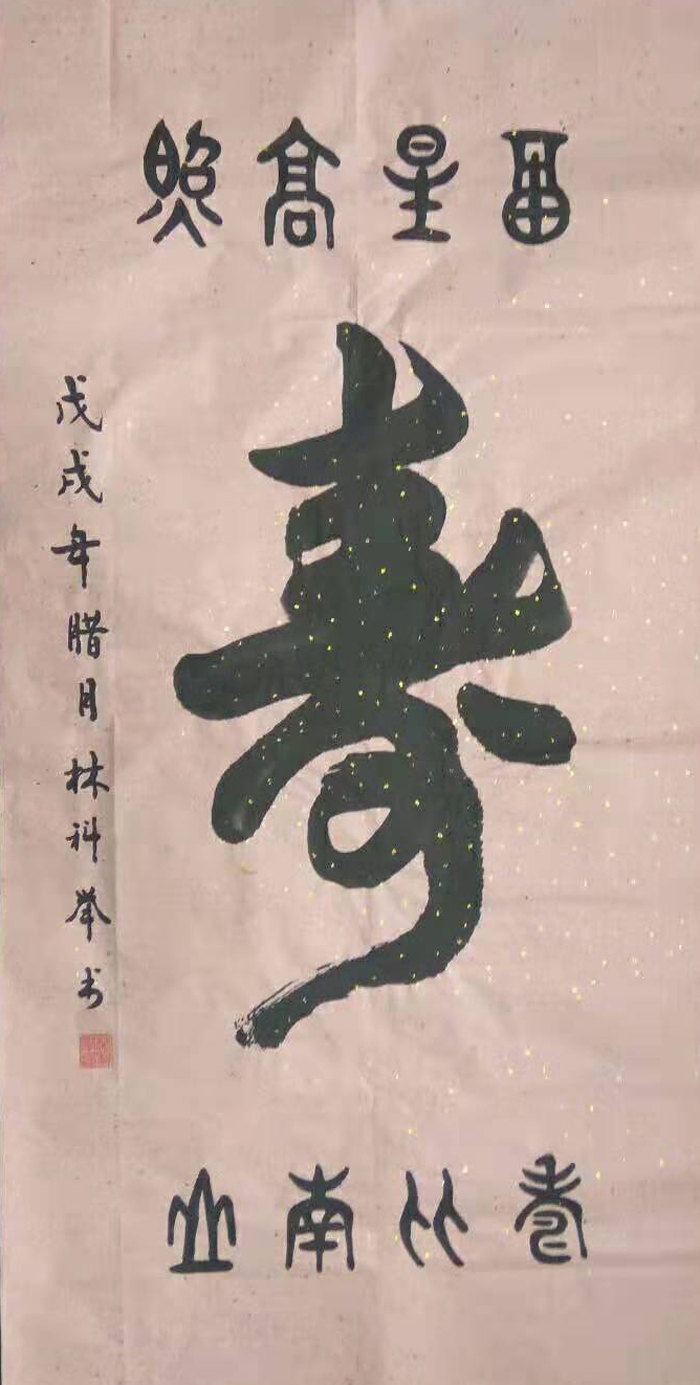 畐星高照
寿
寿比南山
戊戌年腊月林科举书